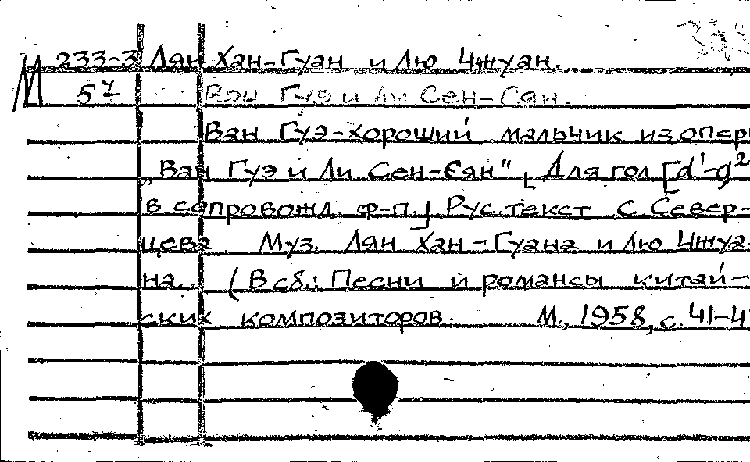 233-3 Лян Хан-Гуан и Лю Чжуан.
М 57 Ван Гуэ и Ли Сен-Сян.
Ван Гуэ-хороший мальчик из опер
„Ван Гуэ и Ли Сен-Сян" [Для гол. [d'-g²
в сопровожд. ф-п.] Рус. текст С. Север-
цева Муз. Лян Хан-Гуана и Лю Чжуа-
на. (В сб.: Песни и романсы китай-
ских композиторов. М., 1958, с. 41-4